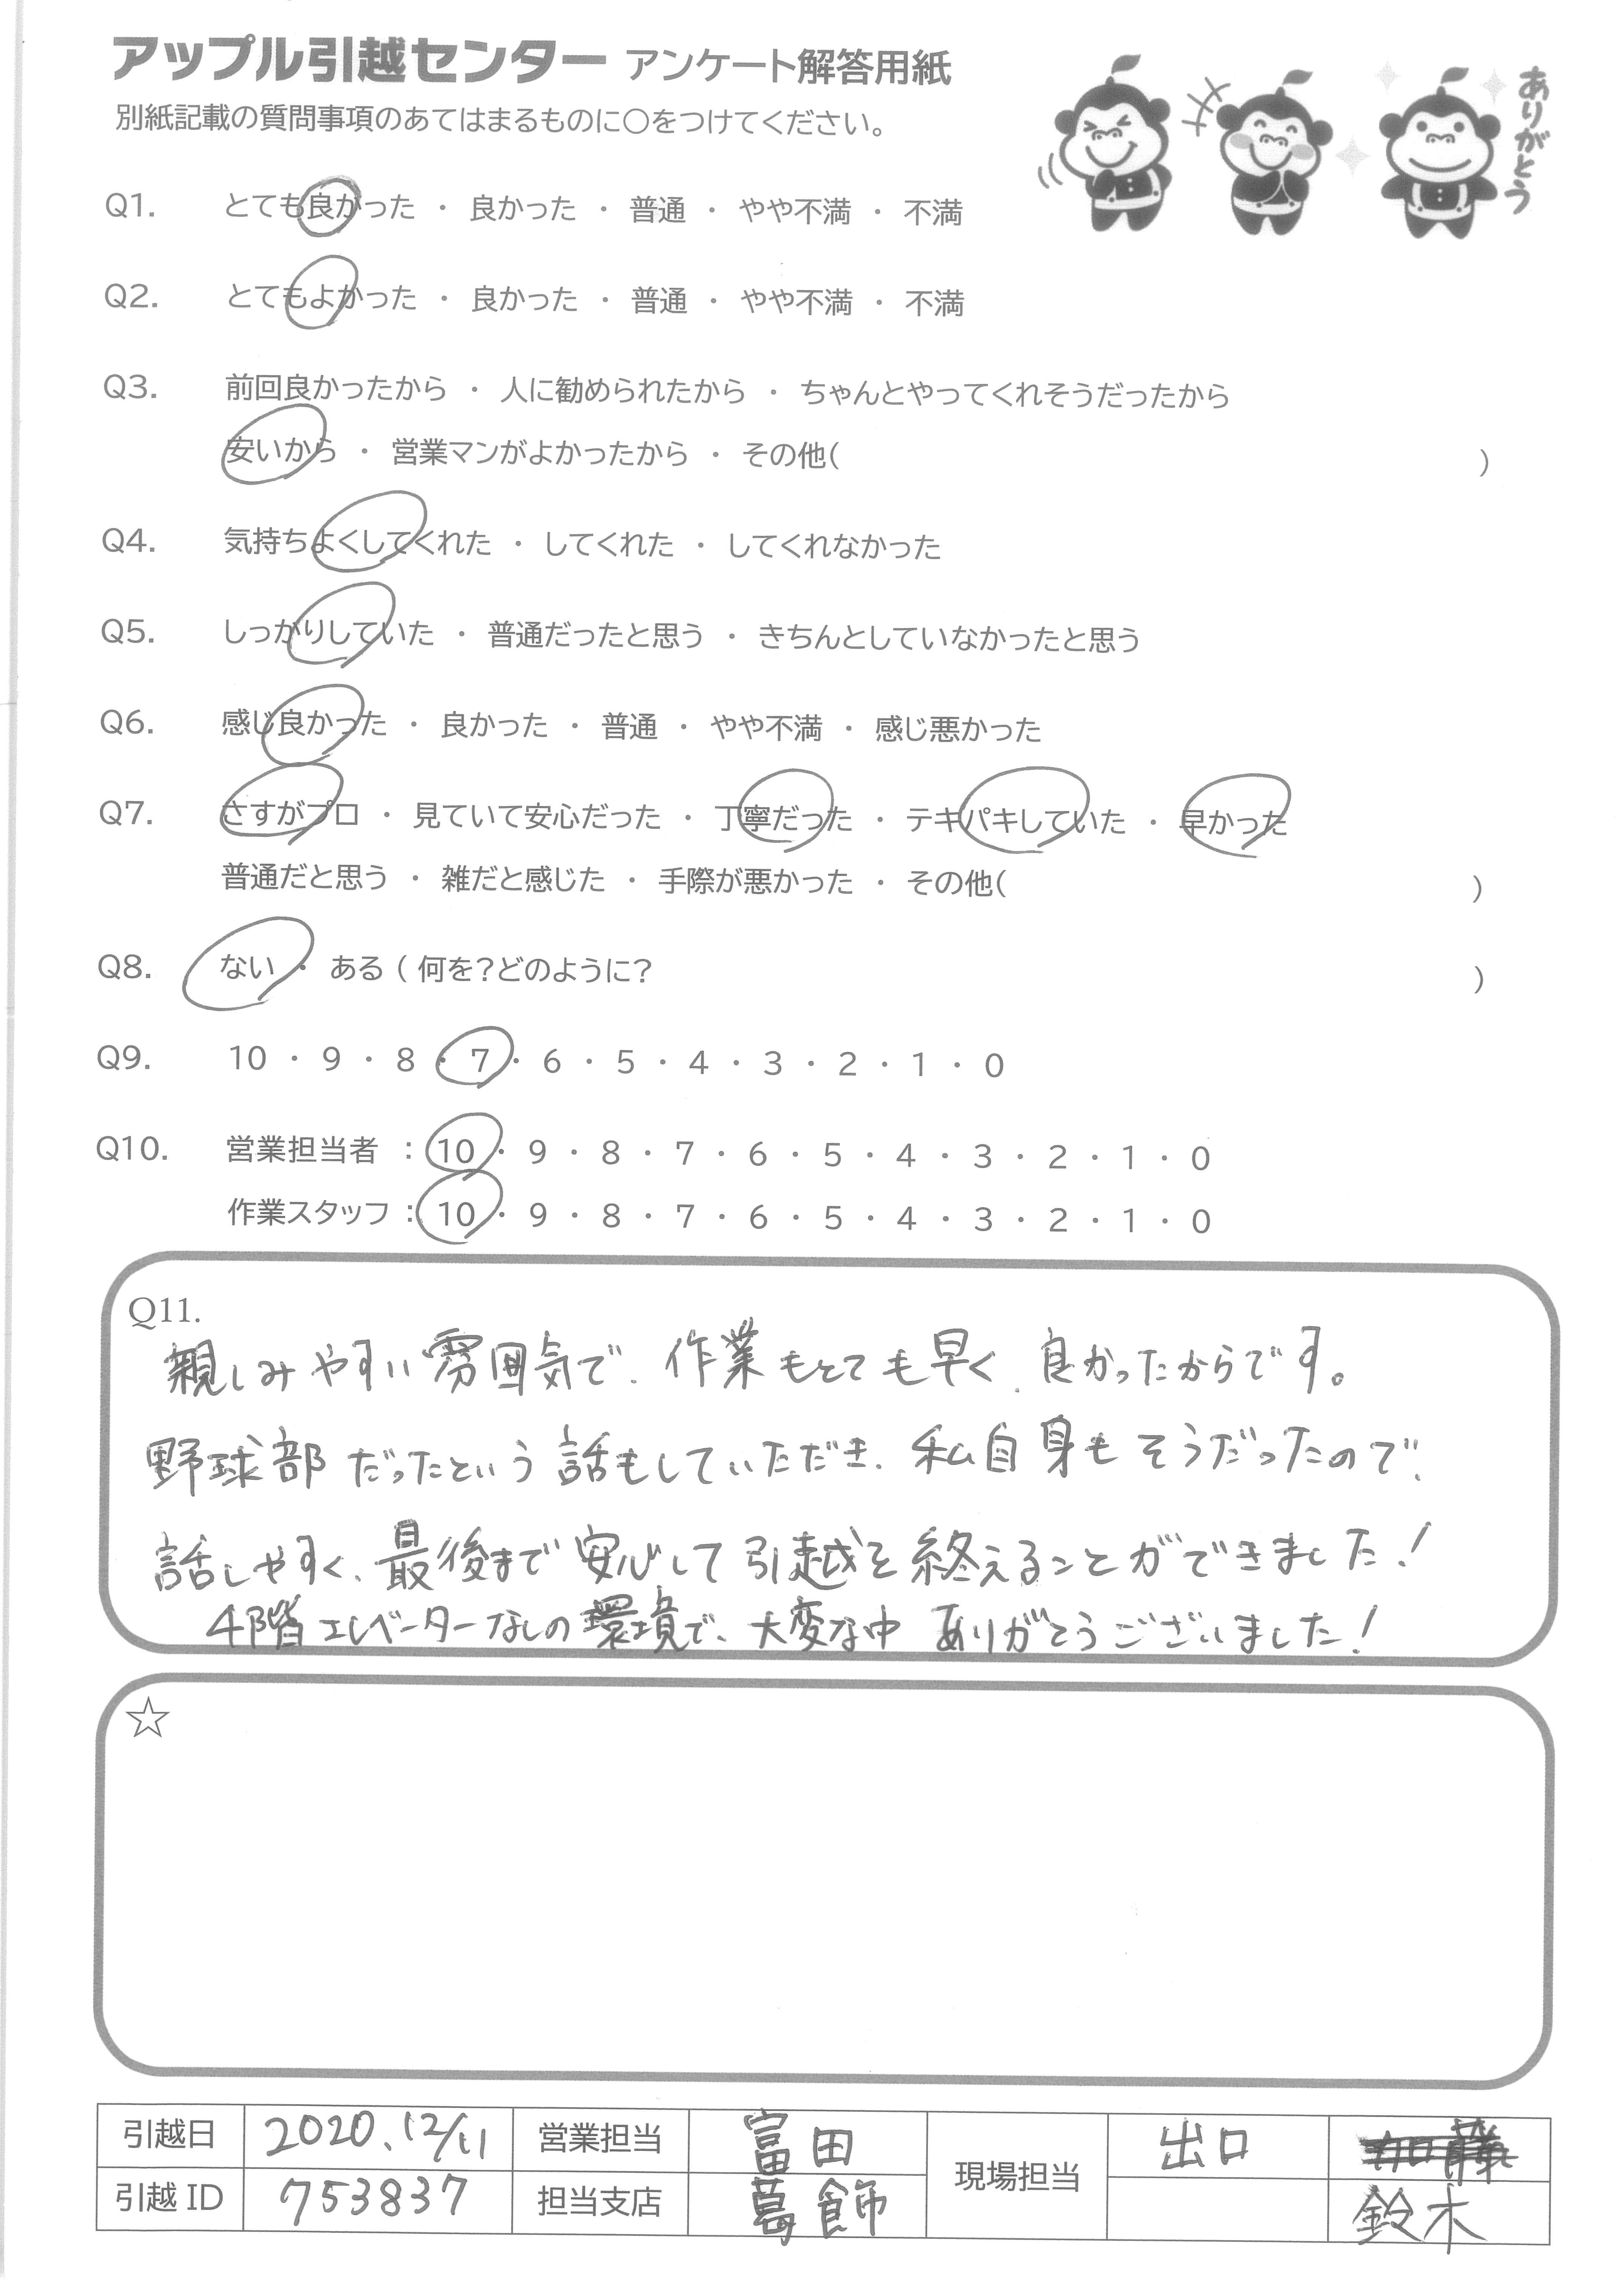 アップル引越センター アンケート解答用紙
別紙記載の質問事項のあてはまるものに○をつけてください。
ありがとう
Q1. とても良かった ・ 良かった ・ 普通 ・ やや不満 ・ 不満
Q2. とてもよかった ・ 良かった ・ 普通 ・ やや不満 ・ 不満
Q3. 前回良かったから ・ 人に勧められたから ・ ちゃんとやってくれそうだったから
安いから ・ 営業マンがよかったから ・ その他( )
Q4. 気持ちよくしてくれた ・ してくれた ・ してくれなかった
Q5. しっかりしていた ・ 普通だったと思う ・ きちんとしていなかったと思う
Q6. 感じ良かった ・ 良かった ・ 普通 ・ やや不満 ・ 感じ悪かった
Q7. さすがプロ ・ 見ていて安心だった ・ 丁寧だった ・ テキパキしていた ・ 早かった
普通だと思う ・ 雑だと感じた ・ 手際が悪かった ・ その他( )
Q8. ない ・ ある ( 何を?どのように? )
Q9. 10 ・ 9 ・ 8 ・ 7 ・ 6 ・ 5 ・ 4 ・ 3 ・ 2 ・ 1 ・ 0
Q10. 営業担当者 : 10 ・ 9 ・ 8 ・ 7 ・ 6 ・ 5 ・ 4 ・ 3 ・ 2 ・ 1 ・ 0
作業スタッフ : 10 ・ 9 ・ 8 ・ 7 ・ 6 ・ 5 ・ 4 ・ 3 ・ 2 ・ 1 ・ 0
Q11.
親しみやすい雰囲気で、作業もとても早く、良かったからです。
野球部だったという話もしていただき、私自身もそうだったので、
話しやすく、最後まで安心して引越を終えることができました!
4階エレベーターなしの環境で、大変な中ありがとうございました!
☆
引越日 2020.12/11 営業担当 富田 現場担当 出口 加藤
引越ID 753837 担当支店 葛飾 鈴木